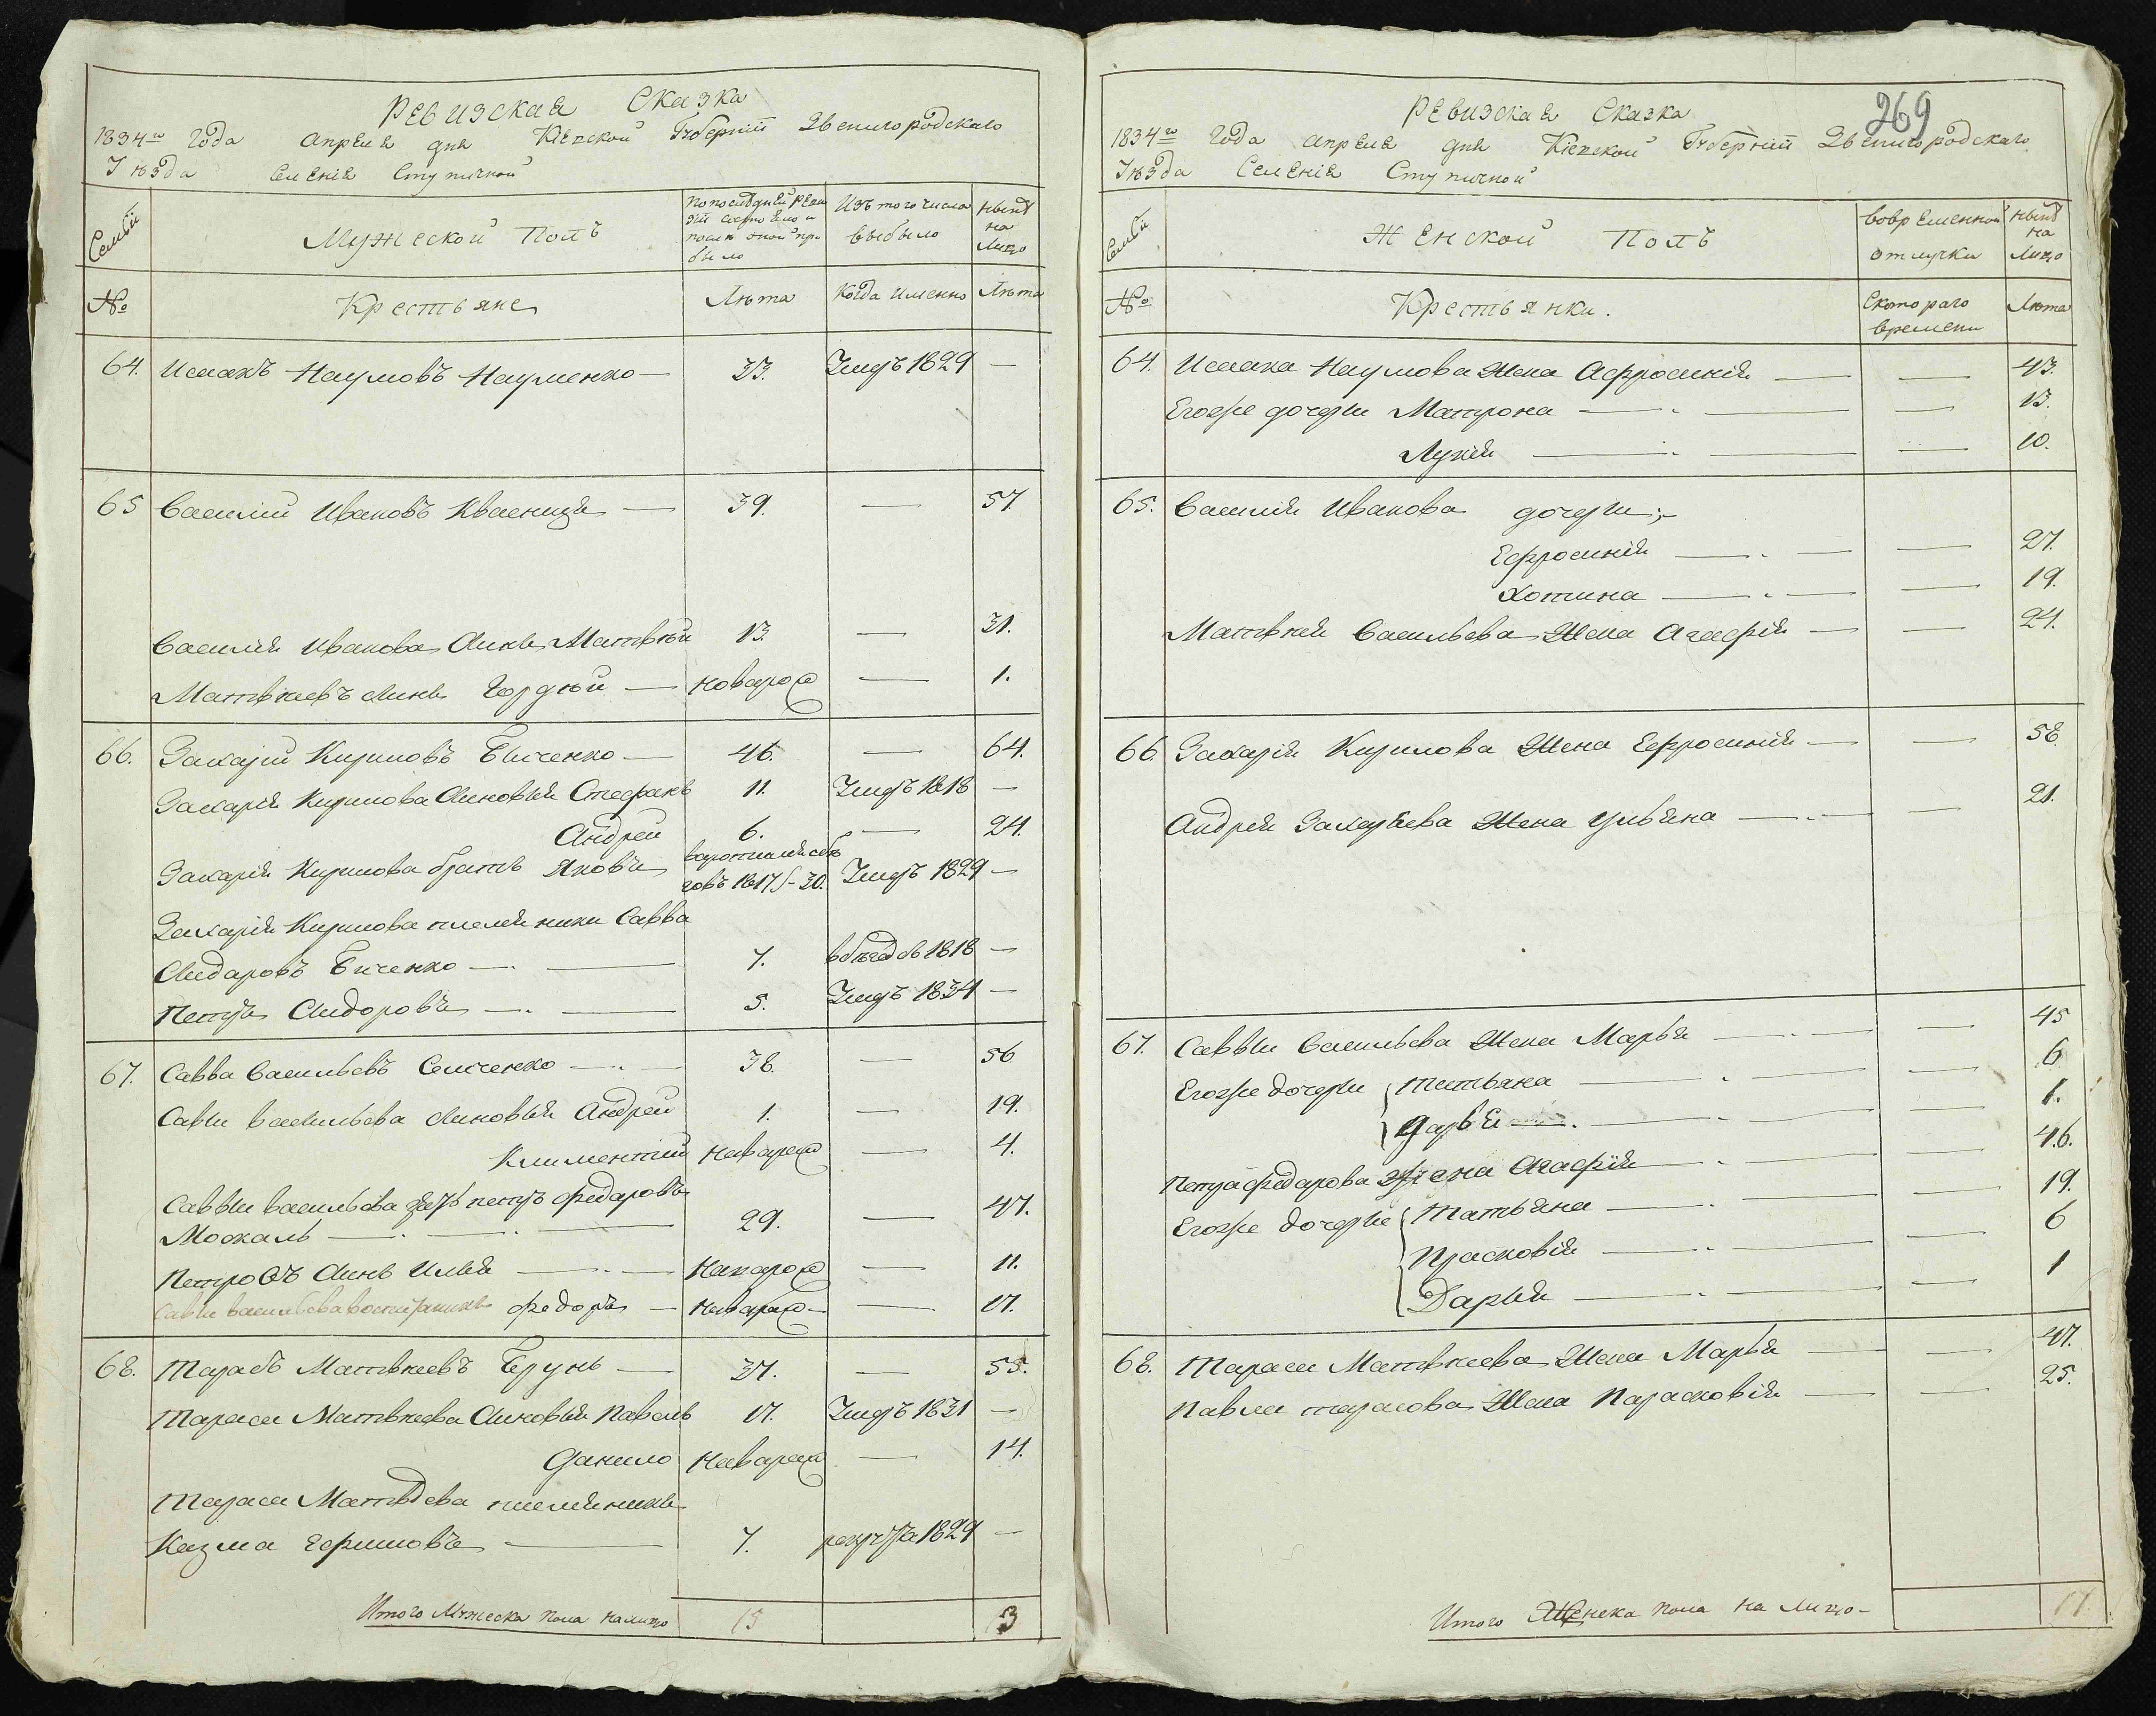 Ревизская Сказка
1834го Года Апреля дня Кіевской Губерніи Звенигородскаго
Уѣзда Селенія Ступичной
Семьи
Мужеской Полъ
По последней Реви
зіи состояло и
после оной при
было
Изъ того числа
выбыло
Нынѣ
на
Лицо
№
Крестьяне
Лѣта
Когда Именно
Лѣта
64. Исаакъ Наумовъ Науменко — 33. Умеръ 1829 —
65 Василій Ивановъ Квасниця — 39. — 57
Василія Иванова Синъ Матвѣй 13. — 31.
Матвѣевъ Синъ Гордѣй — Новорож — 1.
66. Захарій Кириловъ Биченко — 46. — 64.
Захарія Кирилова Синовья Стефанъ 11. Умеръ 1818 —
Андрей 6. — 24.
Захарія Кирилова братъ Яковъ
говъ 1817 - 30. Умеръ 1829 —
Захарія Кирилова племянники Савва
Сидаровъ Биченко — 7. 1818 —
Петръ Сидоровъ — 5. Умеръ 1834 —
67. Савва Васильевъ Семченко — 38. — 56
Савы Васильева Синовья Андрей 1. — 19.
Климентий Новорож — 4.
Саввы Васильева зять петръ федаровъ
Москаль — 29. — 47.
Петровъ Синъ Илья — Новорож — 11.
Савы Васильева воспитаникъ федоръ — Новорож — 17.
68. Тарасъ Матвѣевъ Берунъ — 37. — 55.
Тараса Матвѣева Синовья Павелъ 17. Умеръ 1831 —
Данило Новорож — 14.
Тараса Матвѣева племянникъ
Казма Ефимовъ — 7. рекрутъ 1829 —
Итого Мужеска пола налицо 15 13
269
Ревизская Сказка
1834го Года Апреля дня Кіевской Губерніи Звенигородскаго
Уѣзда Селенія Ступичной
Семьи
Женской Полъ
Вовременной
отлучки
Нынѣ
на
Лицо
№
Крестьянки.
Скотораго
времени
Лѣта
64. Исаака Наумова Жена Афросинія — — 43.
Егоже дочери Матрона — — 13.
Лукія — — 10.
65. Василія Иванова дочери:
Ефросинія — — 27.
Хотина — — 19.
Матвѣя Васильева Жена Агафія — — 24.
66 Захарія Кирилова Жена Ефросинія — — 58.
Андрея Захарьева Жена Ульяна — — 21.
67. Саввы Васильева Жена Марья — — 45
Егоже дочери Татьяна — — 6
Дарья — — 1.
Петра федарова Жена Агафія — — 46.
Егоже дочери Татьяна — — 19.
Прасковія — — 6
Дарья — — 1
68. Тараса Матвѣева Жена Марья — — 47.
Павла тарасова Жена Парасковія — — 25.
Итого Женска пола на Лицо — 17.